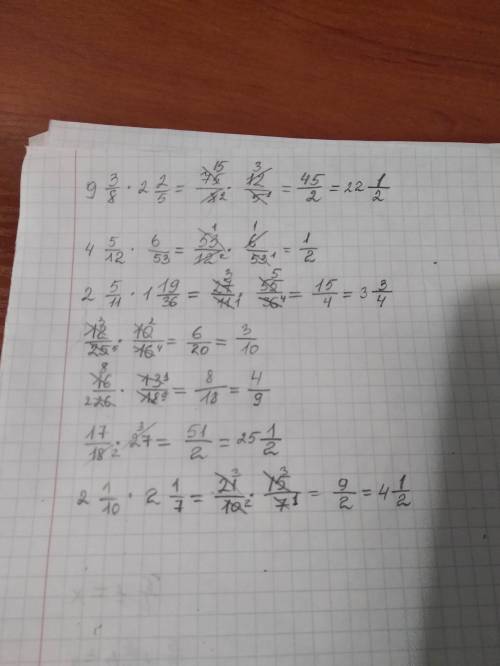 9 3/8 · 2 2/5 = 75/8 · 12/5 = 45/2 = 22 1/2
4 5/12 · 6/53 = 53/12 · 6/53 = 1/2
2 5/11 · 1 19/36 = 27/11 · 55/36 = 15/4 = 3 3/4
12/25 · 10/16 = 6/20 = 3/10
16/26 · 13/18 = 8/18 = 4/9
17/18 · 27 = 51/2 = 25 1/2
2 1/10 · 2 1/7 = 21/10 · 15/7 = 9/2 = 4 1/2